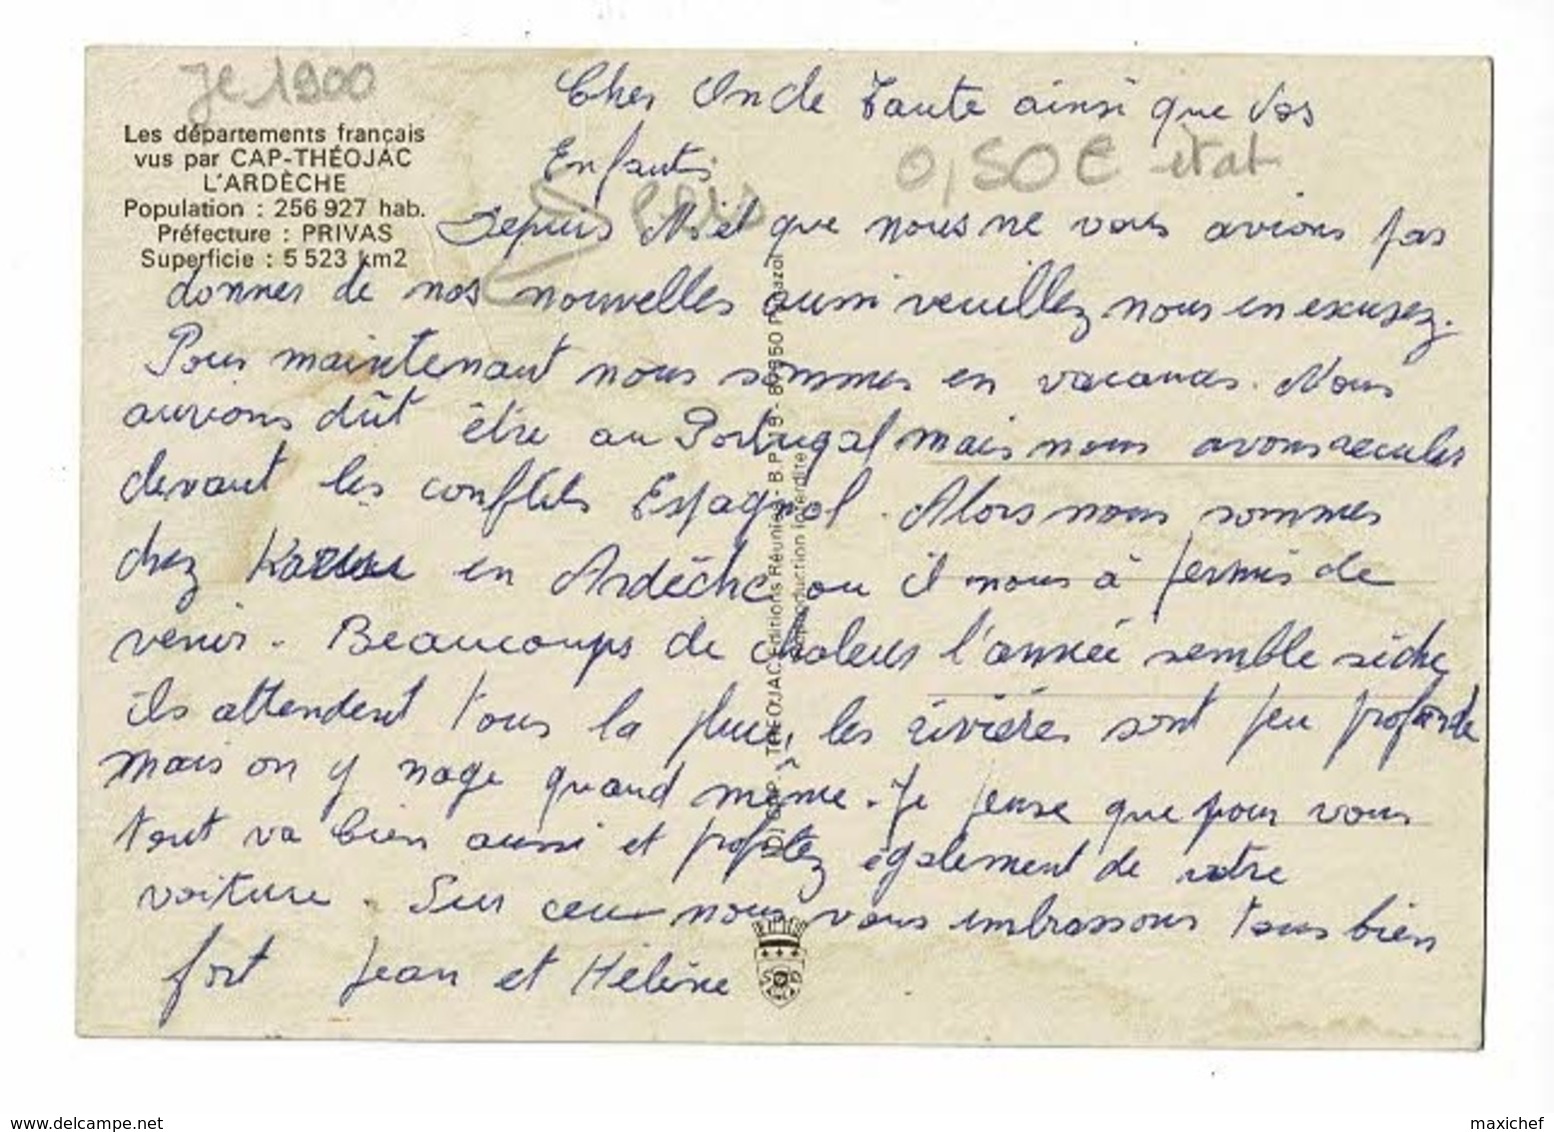 JC 1900
Les départements français
vus par CAP-THÉOJAC
L'ARDÈCHE
Population : 256 927 hab.
Préfecture : PRIVAS
Superficie : 5 523 km2
0,50 € état
Cher Oncle Tante ainsi que Vos
Enfants
Depuis Noël que nous ne vous avions pas
donner de nos nouvelles aussi veuillez nous en excusez.
Pour maintenant nous sommes en vacances. Nous
aurions dût être au Portugal mais nous avons reculer
devant les conflits Espagnol. Alors nous sommes
chez en Ardèche ou il nous à permis de
venir. Beaucoups de chaleur l'année semble sèche
ils attendent tous la pluie, les rivières sont peu profonde
mais on y nage quand même. Je pense que pour vous
tout va bien aussi et profitez également de votre
voiture. Sur ceux nous vous embrassons tous bien
fort Jean et Hélène
THÉOJAC Editions Réunies - B.P. 19
Reproduction interdite
delcampe.net
maxichef